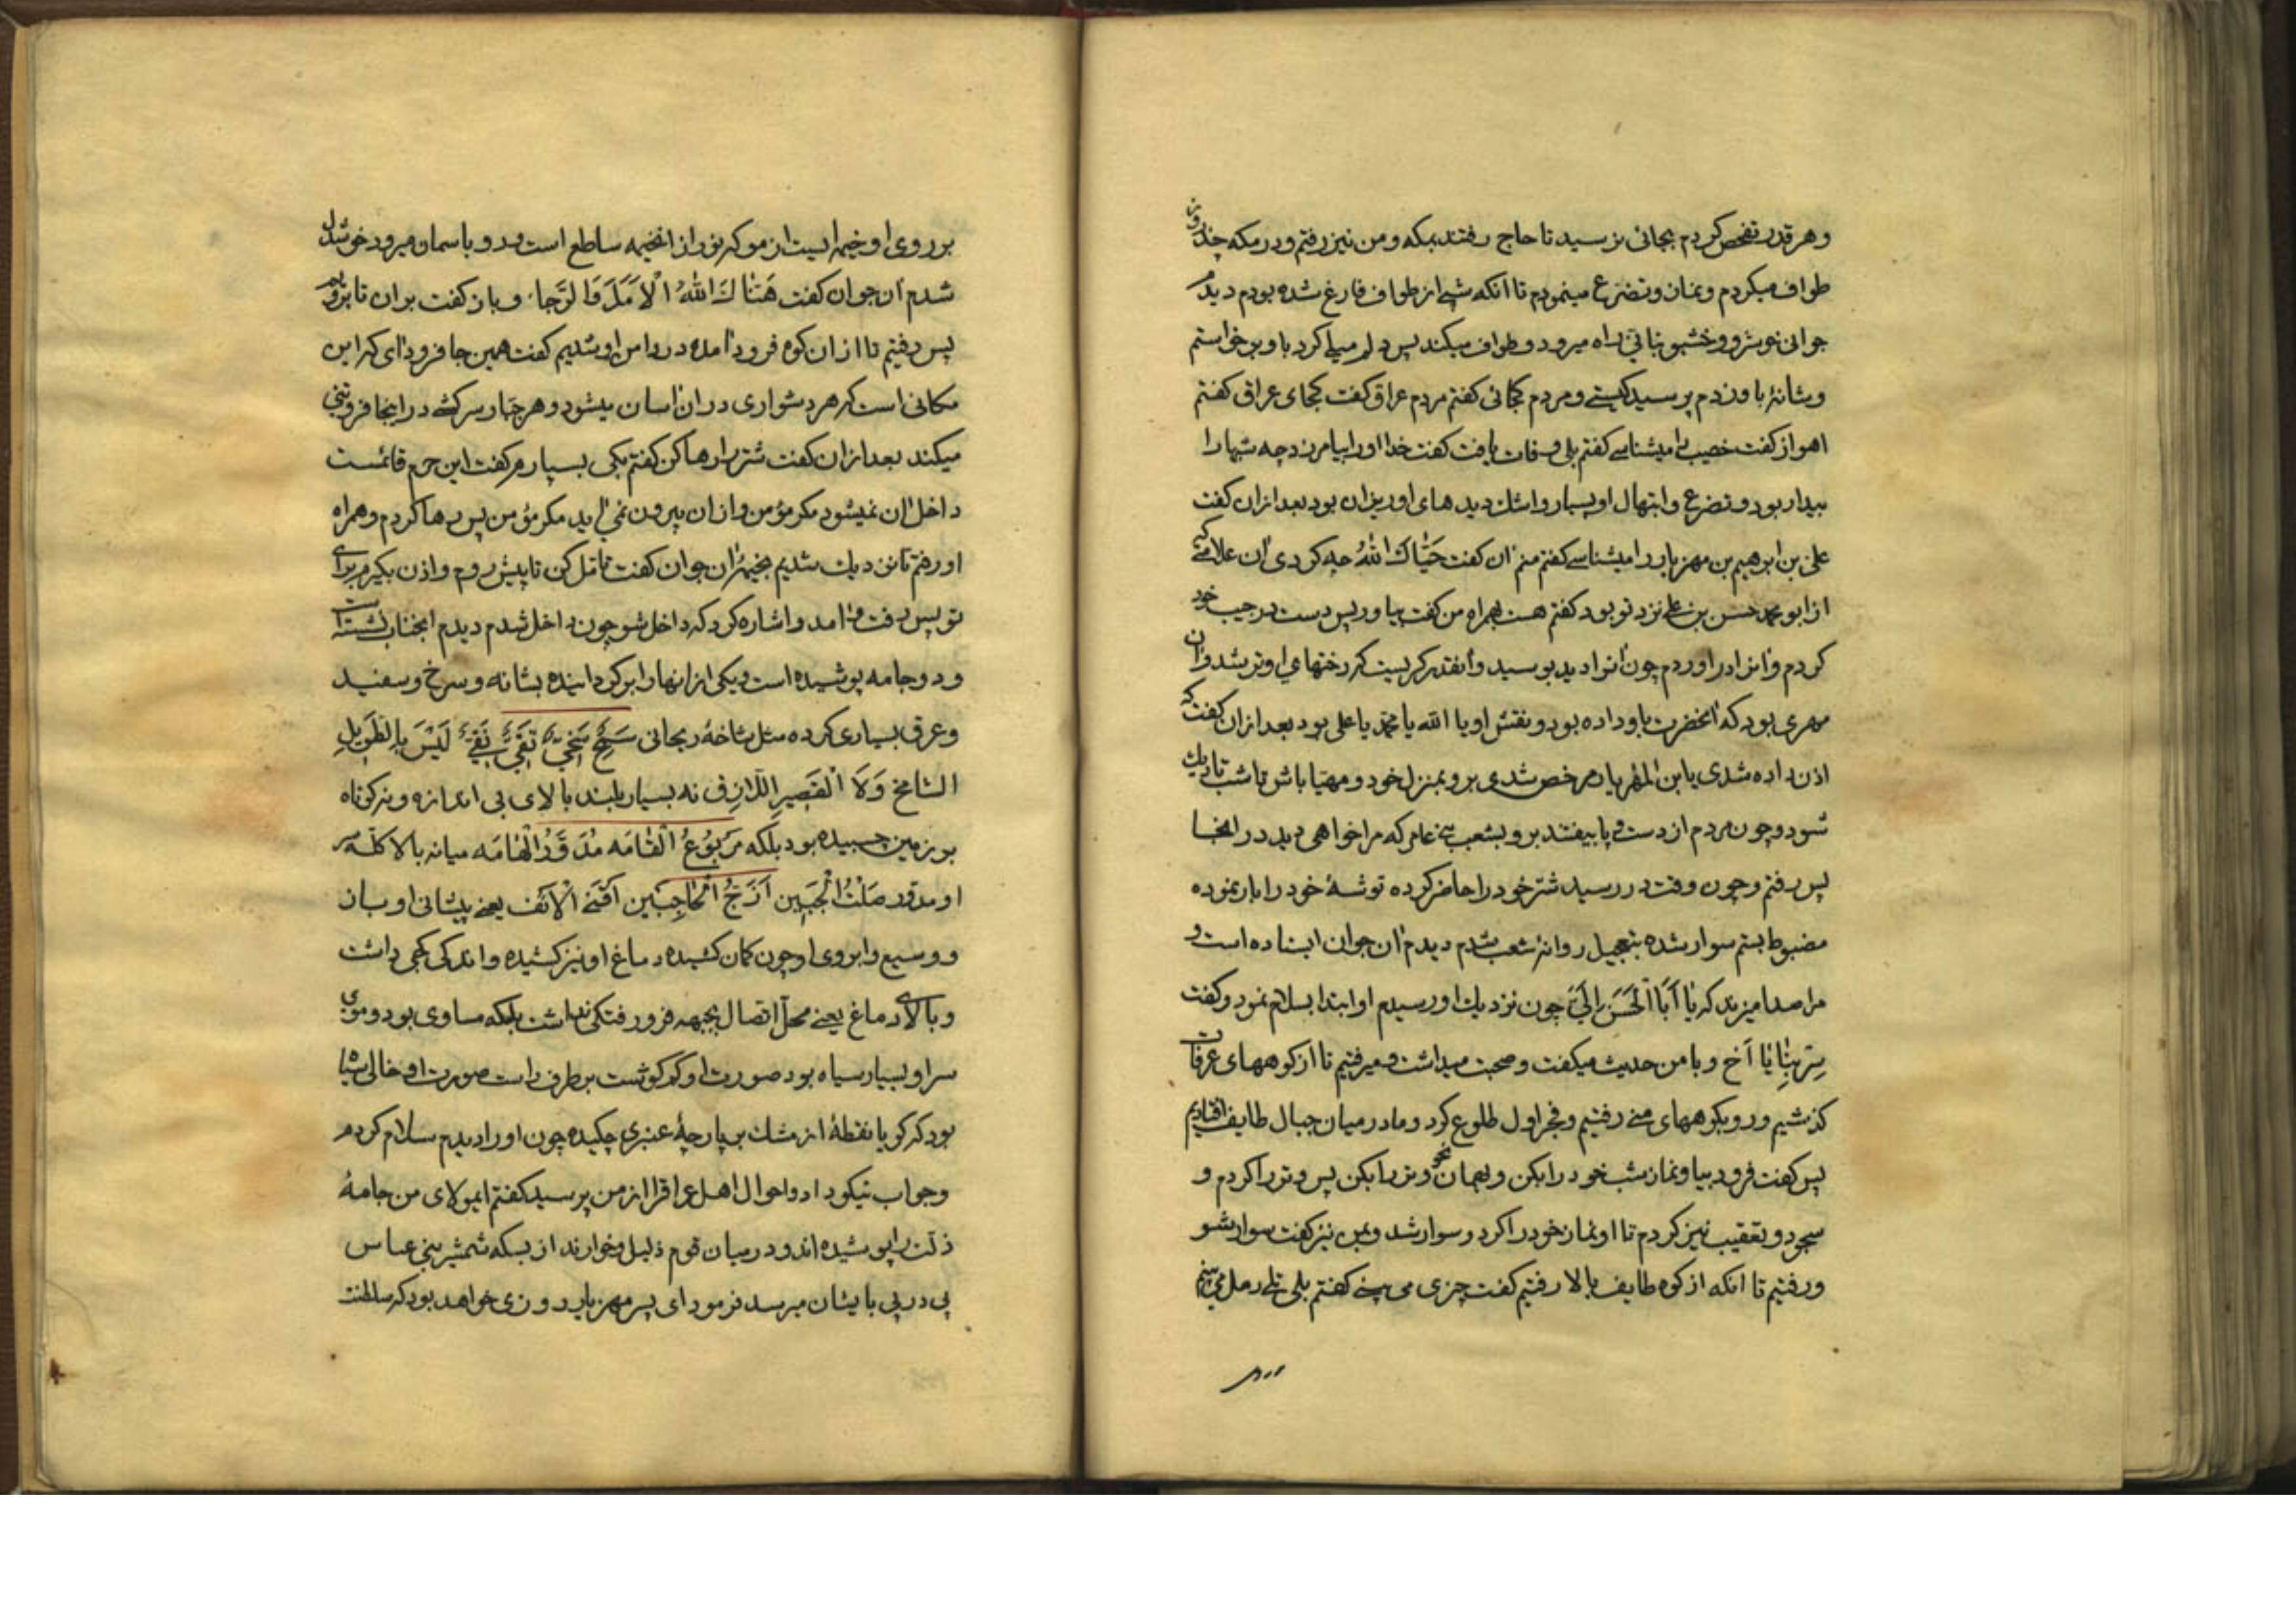 وهر قدر تفحص کردم بجائی نرسید تا حاج رفتند بمکه و من نیز رفتم و در مکه چند روز
طواف میکردم و نماز و تضرع مینمودم تا آنکه شبی از طواف فارغ شده بودم دیدم
جوانی خوشرو و خشبو بتأنی راه میرود و طواف میکند پس دلم میلی کرد باو برخواستم
و شانه باو زدم پرسید کیستی و مردم کجائی کفتم مردم عراق کفت کجای عراق کفتم
اهواز کفت خصیب را میشناسی کفتم بلی وفات یافت کفت خدا او را بیامرزد چه شبها را
بیدار بود و تضرع و ابتهال او بسیار و اشك دیدهای او ریزان بود بعد از ان کفت
علی بن ابرهیم بن مهزیار را میشناسی کفتم منم آن کفت حَیَّاكَ اللّٰهُ چه کردی آن علامتی که
از ابو محمد حسن بن علی نزد تو بود کفتم هست همراه من کفت بیاور پس دست در جیب خود
کردم و آنرا در اوردم چون آنرا دید بوسید و آنقدر کریست که رختهای او تر شد و آن
مهری بود که آنحضرت باو داده بود و نقش او یا الله یا محمد یا علی بود بعد از ان کفت که
اذن داده شدی یا بن المهزیار مرخص شدی برو بمنزل خود و مهیا باش تا شب تاریك
شود و چون مردم از دست و پا بیفتند برو بشعب بنی عامر که مرا خواهی دید در انجا
پس رفتم و چون وقت در رسید شتر خود را حاضر کرده توشهٔ خود را بار نموده
مضبوط بستم سوار شده بتعجیل روانهٔ شعب شدم دیدم آن جوان ایستاده است و
مرا صدا میزند که یٰا اَبَا الْحَسَنِ اِلَیَّ چون نزدیك او رسیدم او ابتدا بسلام نمود و کفت
سِرْ بِنٰا یٰا اَخ و با من حدیث میکفت و صحبت میداشت و میرفتیم تا از کوههای عرفات
کذشتیم و رو بکوههای منی رفتیم و فجر اول طلوع کرد و ما در میان جبال طایف افتادیم
پس کفت فرود بیا و نماز شب خود را بکن و بهمان نحو وتر را بکن پس وتر را کردم و
سجود و تعقیب نیز کردم تا او نماز خود را کرد و سوار شد و بمن نیز کفت سوار شو
و رفتیم تا آنکه از کوه طایف بالا رفتیم کفت چیزی می بینی کفتم بلی تلی رمل می بینم
بر روی او خیمه ایست از مو که نور از انخیمه ساطع است و رو باسمان میرود خوشدل
شدم آن جوان کفت هَنٰاكَ اللّٰهُ الْاَمَلَ وَ الرَّجاء و باز کفت بران تا برویم
پس رفتیم تا از ان کوه فرود آمده در دامن او شدیم کفت همین جا فرود آی که این
مکانی است که هر دشواری در ان اسان میشود و هر جبار سرکشی در اینجا فروتنی
میکند بعد از ان کفت شتر را رها کن کفتم بکی بسپارم کفت این حرم قائمست
داخل آن نمیشود مکر مؤمن و از ان بیرون نمی آید مکر مؤمن پس رها کردم و همراه
او رفتم تا نزدیك شدیم بخیمه آن جوان کفت تامل کن تا پیش روم و اذن بکیرم برای
تو پس رفت و آمد و اشاره کرد که داخل شو چون داخل شدم دیدم آنجناب نشسته است
و دو جامه پوشیده است و یکی از انها را برکردانیده بشانه و سرخ و سفید
و عرق بسیاری کرده مثل شاخهٔ ریحانی سَمْحٌ سَخِیٌّ تَقِیٌّ نَقِیٌّ لَیْسَ بِالطَّوِیلِ
الشامخ وَلَا الْقَصِیرِ اللَّازِقِ نه بسیار بلند بالای بی اندازه و نه کوتاه
بر زمین چسبیده بود بلکه مَرْبُوعُ الْقٰامَه مُدَوَّرُ الْهٰامَه میانه بالا کله سر
او مدور صَلْتُ الْجَبِین اَزَجُّ الْحٰاجِبَیْن اَقْنَی الْاَنْف یعنی پیشانی او باز
و وسیع و ابروی او چون کمان کشیده دماغ او نیز کشیده و اندکی کجی داشت
و بالای دماغ یعنی محل اتصال بجبهه فرو رفتکی نداشت بلکه مساوی بود و موی
سر او بسیار سیاه بود صورت او کم کوشت بر طرف راست صورت او خالی سیاه
بود که کویا نقطهٔ از مشك بر پارچهٔ عنبری چکیده چون او را دیدم سلام کردم
و جواب نیکو داد و احوال اهل عراق را از من پرسید کفتم ایمولای من جامهٔ
ذلت را پوشیده اند و در میان قوم ذلیل و خوارند از بسکه شمشیر بنی عباس
پی در پی بایشان میرسد فرمود ای پسر مهزیار روزی خواهد بود که سلطنت